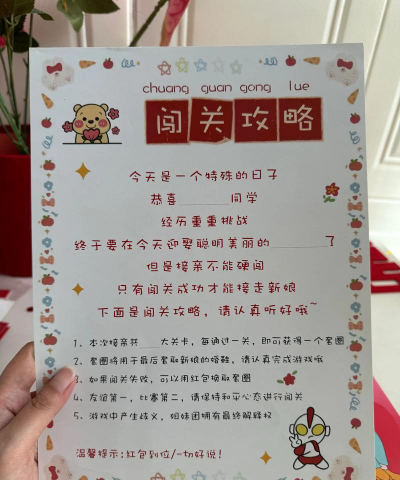 chuang guan gong lue
闯关攻略
今天是一个特殊的日子
恭喜______同学
经历重重挑战
终于要在今天迎娶聪明美丽的______了
但是接亲不能硬闯
只有闯关成功才能接走新娘
下面是闯关攻略，请认真听好哦~
1、本次接亲共___大关卡，每通过一关，即可获得一个套圈
2、套圈将用于最后套取新娘的婚鞋，请认真完成游戏哦
3、如果闯关失败，可以用红包换取套圈
4、友谊第一，比赛第二，请保持和平心态进行闯关
5、游戏中产生歧义，姐妹团拥有最终解释权
温馨提示：红包到位/一切好说！